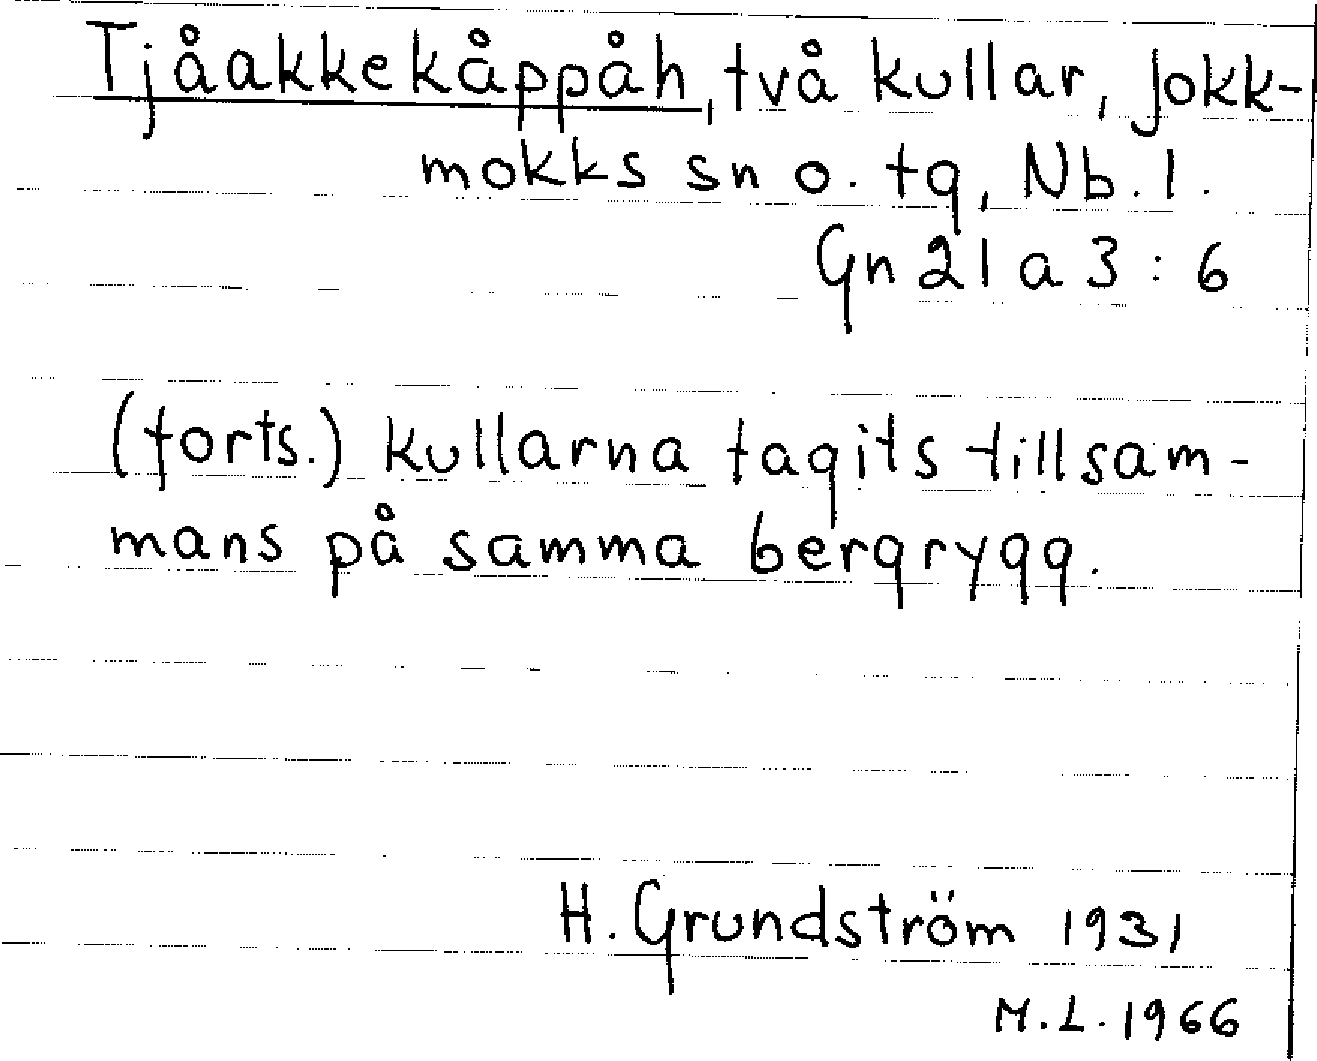 Tjåakkekåppåh, två kullar, Jokk-
mokks sn o. tg, Nb. l.
Gn 21 a 3 : 6
(forts.) kullarna tagits tillsam-
mans på samma bergrygg.
H. Grundström 1931
M.L. 1966